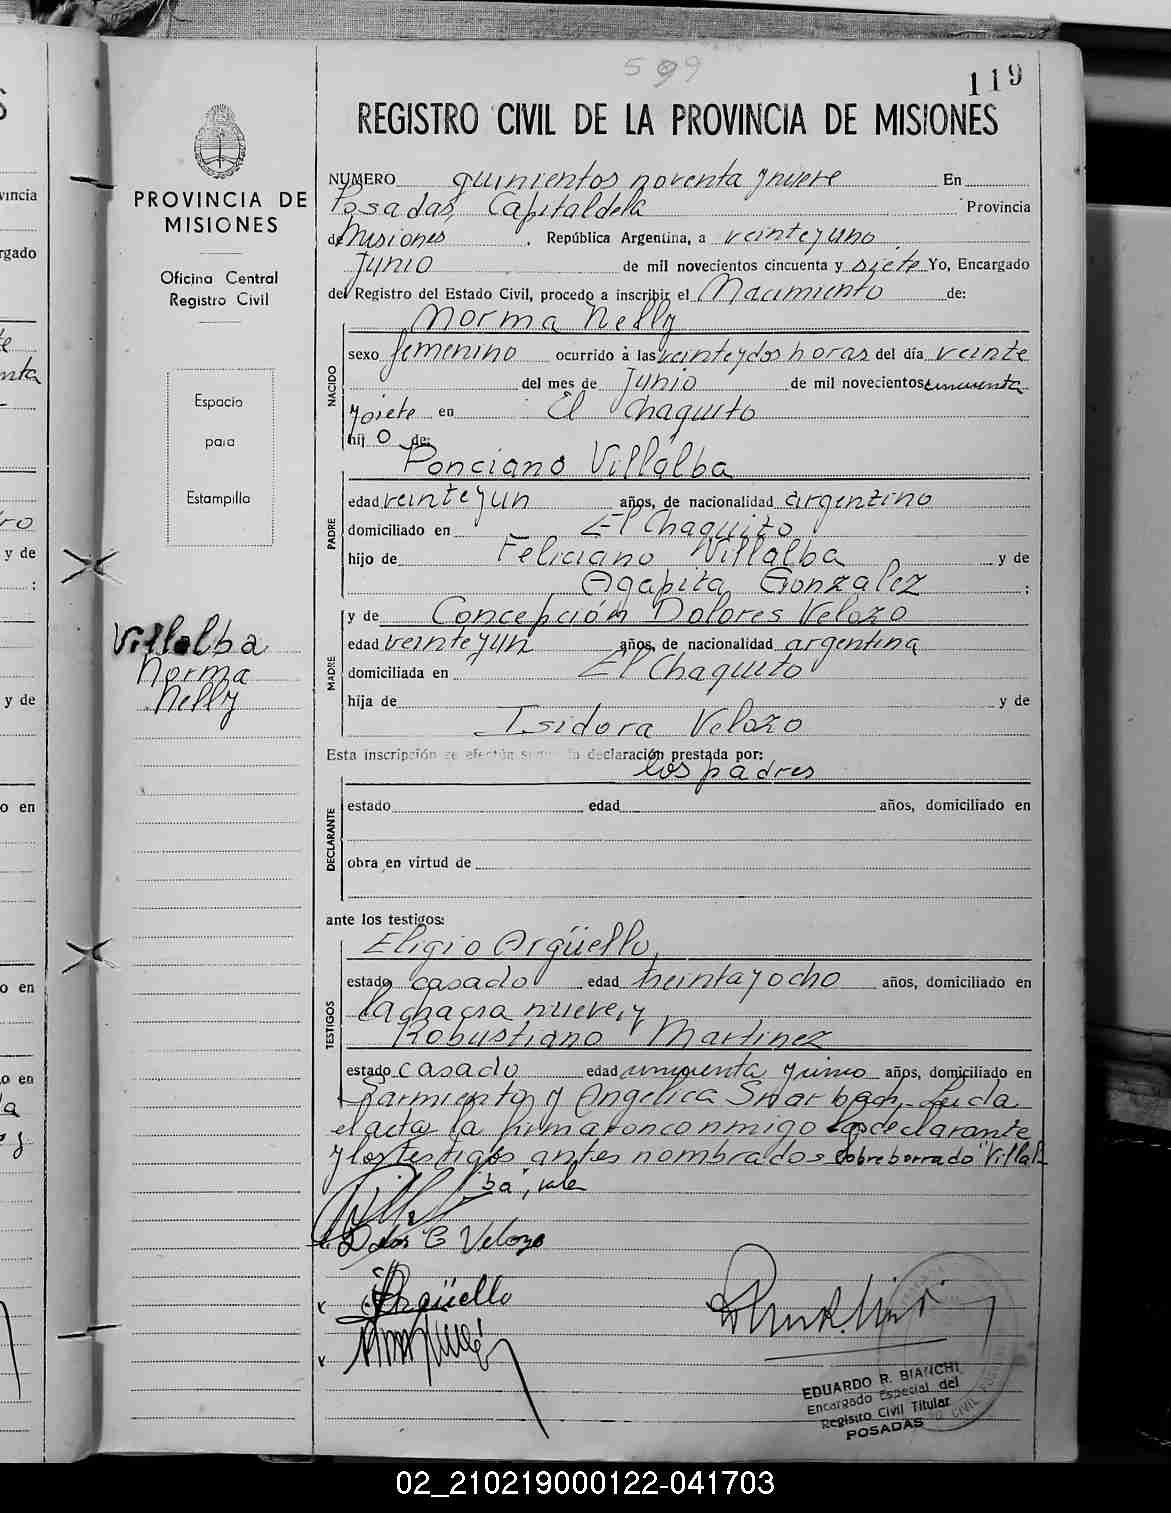 599
119
REGISTRO CIVIL DE LA PROVINCIA DE MISIONES
NUMERO quinientos noventa ynueve En
Posadas, Capital de la Provincia
de Misiones, República Argentina, a veinteyuno
Junio de mil novecientos cincuenta y siete Yo, Encargado
del Registro del Estado Civil, procedo a inscribir el Nacimiento de:
NACIDO
Norma Nelly
sexo femenino ocurrido a las veinteydos horas del día veinte
del mes de Junio de mil novecientos cincuenta
ysiete en El Chaquito
hij o de:
Ponciano Villalba
PADRE
edad veinteyun años, de nacionalidad argentino
domiciliado en El Chaquito
hijo de Feliciano Villalba y de
Agapita Gonzalez ;
MADRE
y de Concepción Dolores Velozo
edad veinteyun años, de nacionalidad argentina
domiciliada en El Chaquito
hija de y de
Isidora Velozo
Esta inscripción se efectúa según la declaración prestada por:
los padres
DECLARANTE
estado edad años, domiciliado en
obra en virtud de
ante los testigos:
TESTIGOS
Eligio Argüello,
estado casado edad treintayocho años, domiciliado en
la chacra nueve, y
Robustiano Martinez
estado casado edad cincuenta yuno años, domiciliado en
Sarmiento y Angelica Leida
el acta la firmaron conmigo declarante
y los testigos antes nombrados Sobreborrado "Villal
ba", vale
Dolores C Velozo
Argüello
EDUARDO R. BIANCHI
Encargado Especial del
Registro Civil Titular
POSADAS
PROVINCIA DE
MISIONES
Oficina Central
Registro Civil
Espacio
para
Estampilla
Villalba
Norma
Nelly
vincia
rgado
y de
y de
o en
o en
o en
02_210219000122-041703